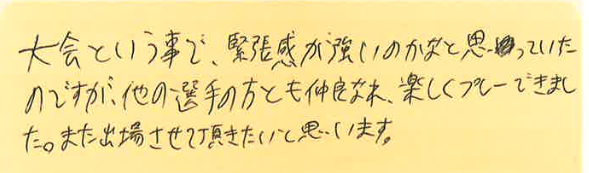 大会という事で、緊張感が強いのかなと思っていた
のですが、他の選手の方とも仲良なれ、楽しくプレーできまし
た。また出場させて頂きたいと思います。